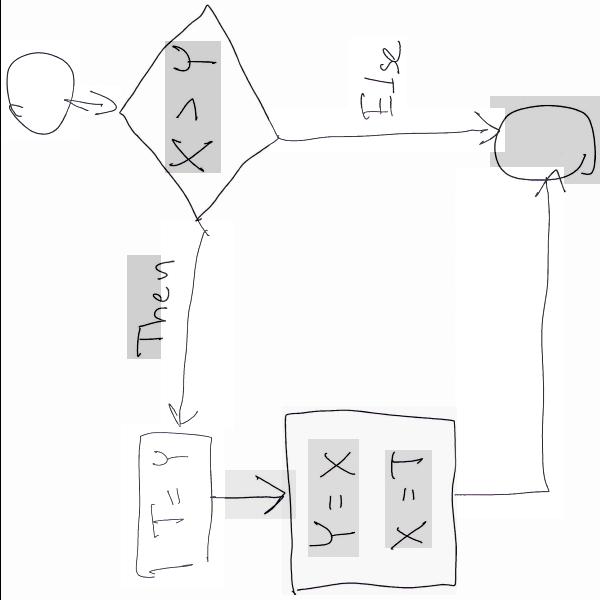 X > Y
Else
Then
T = Y
Y = X
X = T